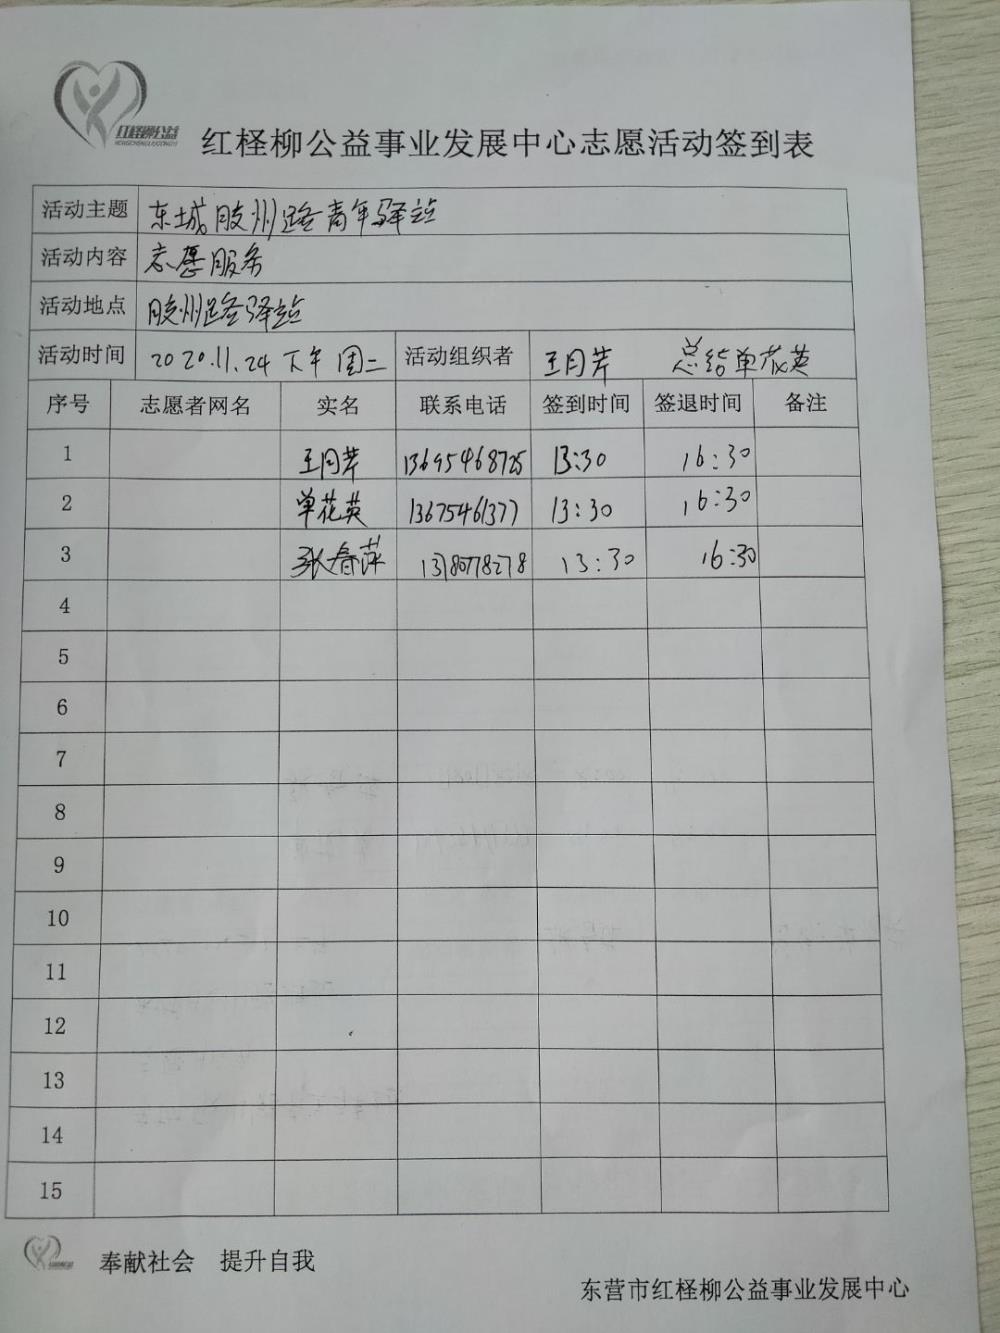 红柽柳公益
HONGCHENGLIUGONGYI
红柽柳公益事业发展中心志愿活动签到表
活动主题 东城胶州路青年驿站
活动内容 志愿服务
活动地点 胶州路驿站
活动时间 2020.11.24 下午 周二 活动组织者 王月芹 总结单花英
序号 志愿者网名 实名 联系电话 签到时间 签退时间 备注
1 王月芹 13695468725 13:30 16:30
2 单花英 13675461377 13:30 16:30
3 张春萍 13:30 16:30
4
5
6
7
8
9
10
11
12
13
14
15
奉献社会 提升自我
东营市红柽柳公益事业发展中心